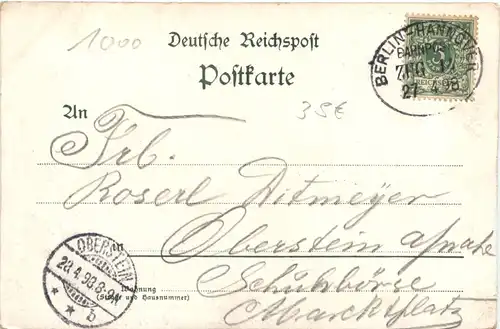 1000
Deutsche Reichspost
Postkarte
35€
BERLIN-HANNOVER
BAHNPOST
ZUG 14
27 4 98
An
Frl.
Roserl Ditmeyer
in
Oberstein a/Nahe
OBERSTEIN
28.4.98.8-9
* * b
Wohnung
(Straße und Hausnummer)
Schuhbörse
Marcktplatz